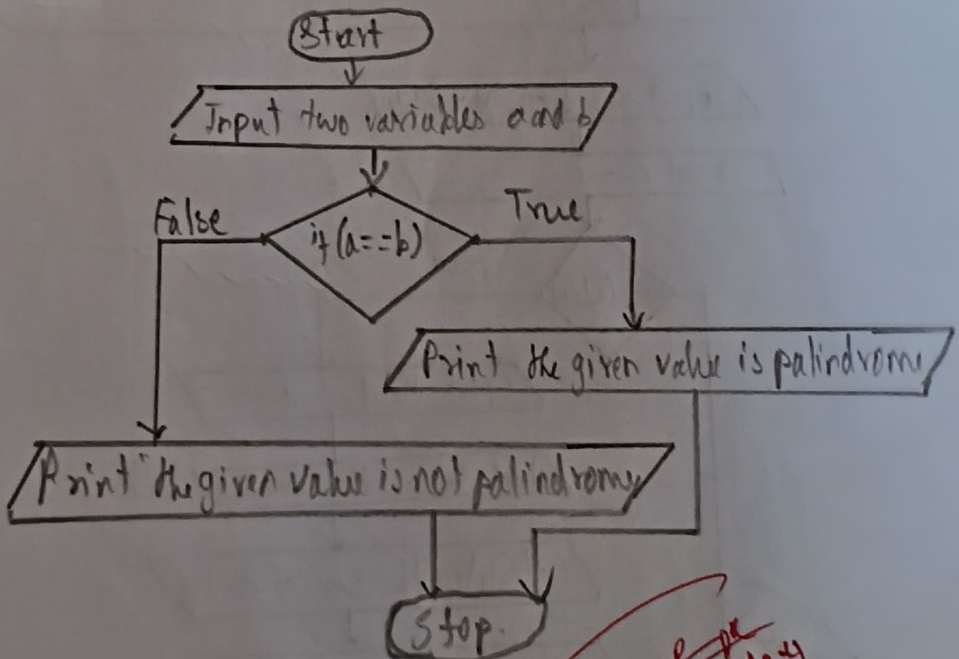 Start
Input two variables a and b
if (a==b)
False
True
Print the given value is palindrome
Print "the given value is not palindrome
Stop.